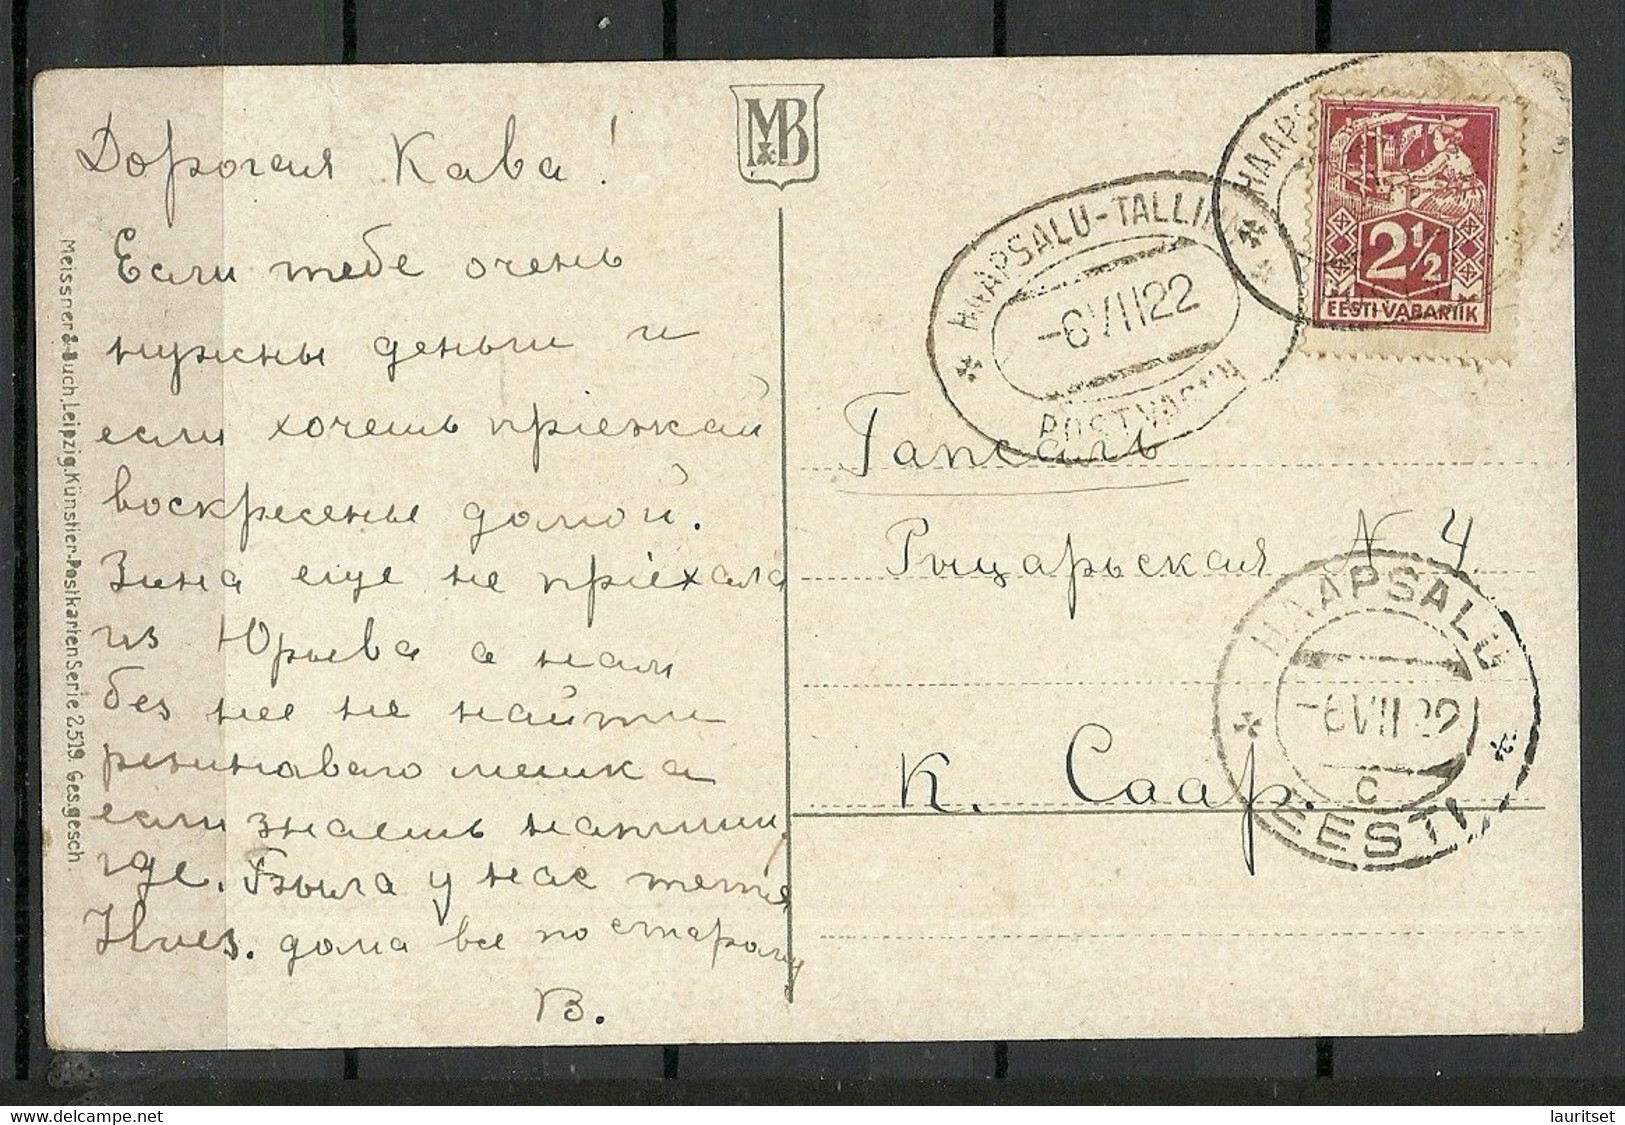 Дорогая Кава!
Если тебе очень
нужны деньги и
если хочешь пріезжай
воскресенье домой.
Зина еще не пріѣхала
из Юрьева а нам
без нее не найти
резиноваго мешка
если знаешь напиши,
где. Была у нас тетя
Ilves. дома все по старому
В.
Meissner & Buch, Leipzig. Künstler-Postkarten Serie 2519. Ges. gesch.
MB
HAAPSALU-TALLINN
-6 VII 22
POSTVAGUN
HAAPS
2½
EESTI·VABARIIK
Гапсаль
Рыцарьская N 4.
К. Саар.
HAAPSALU
-6 VII 22
C
EESTI
lauritset